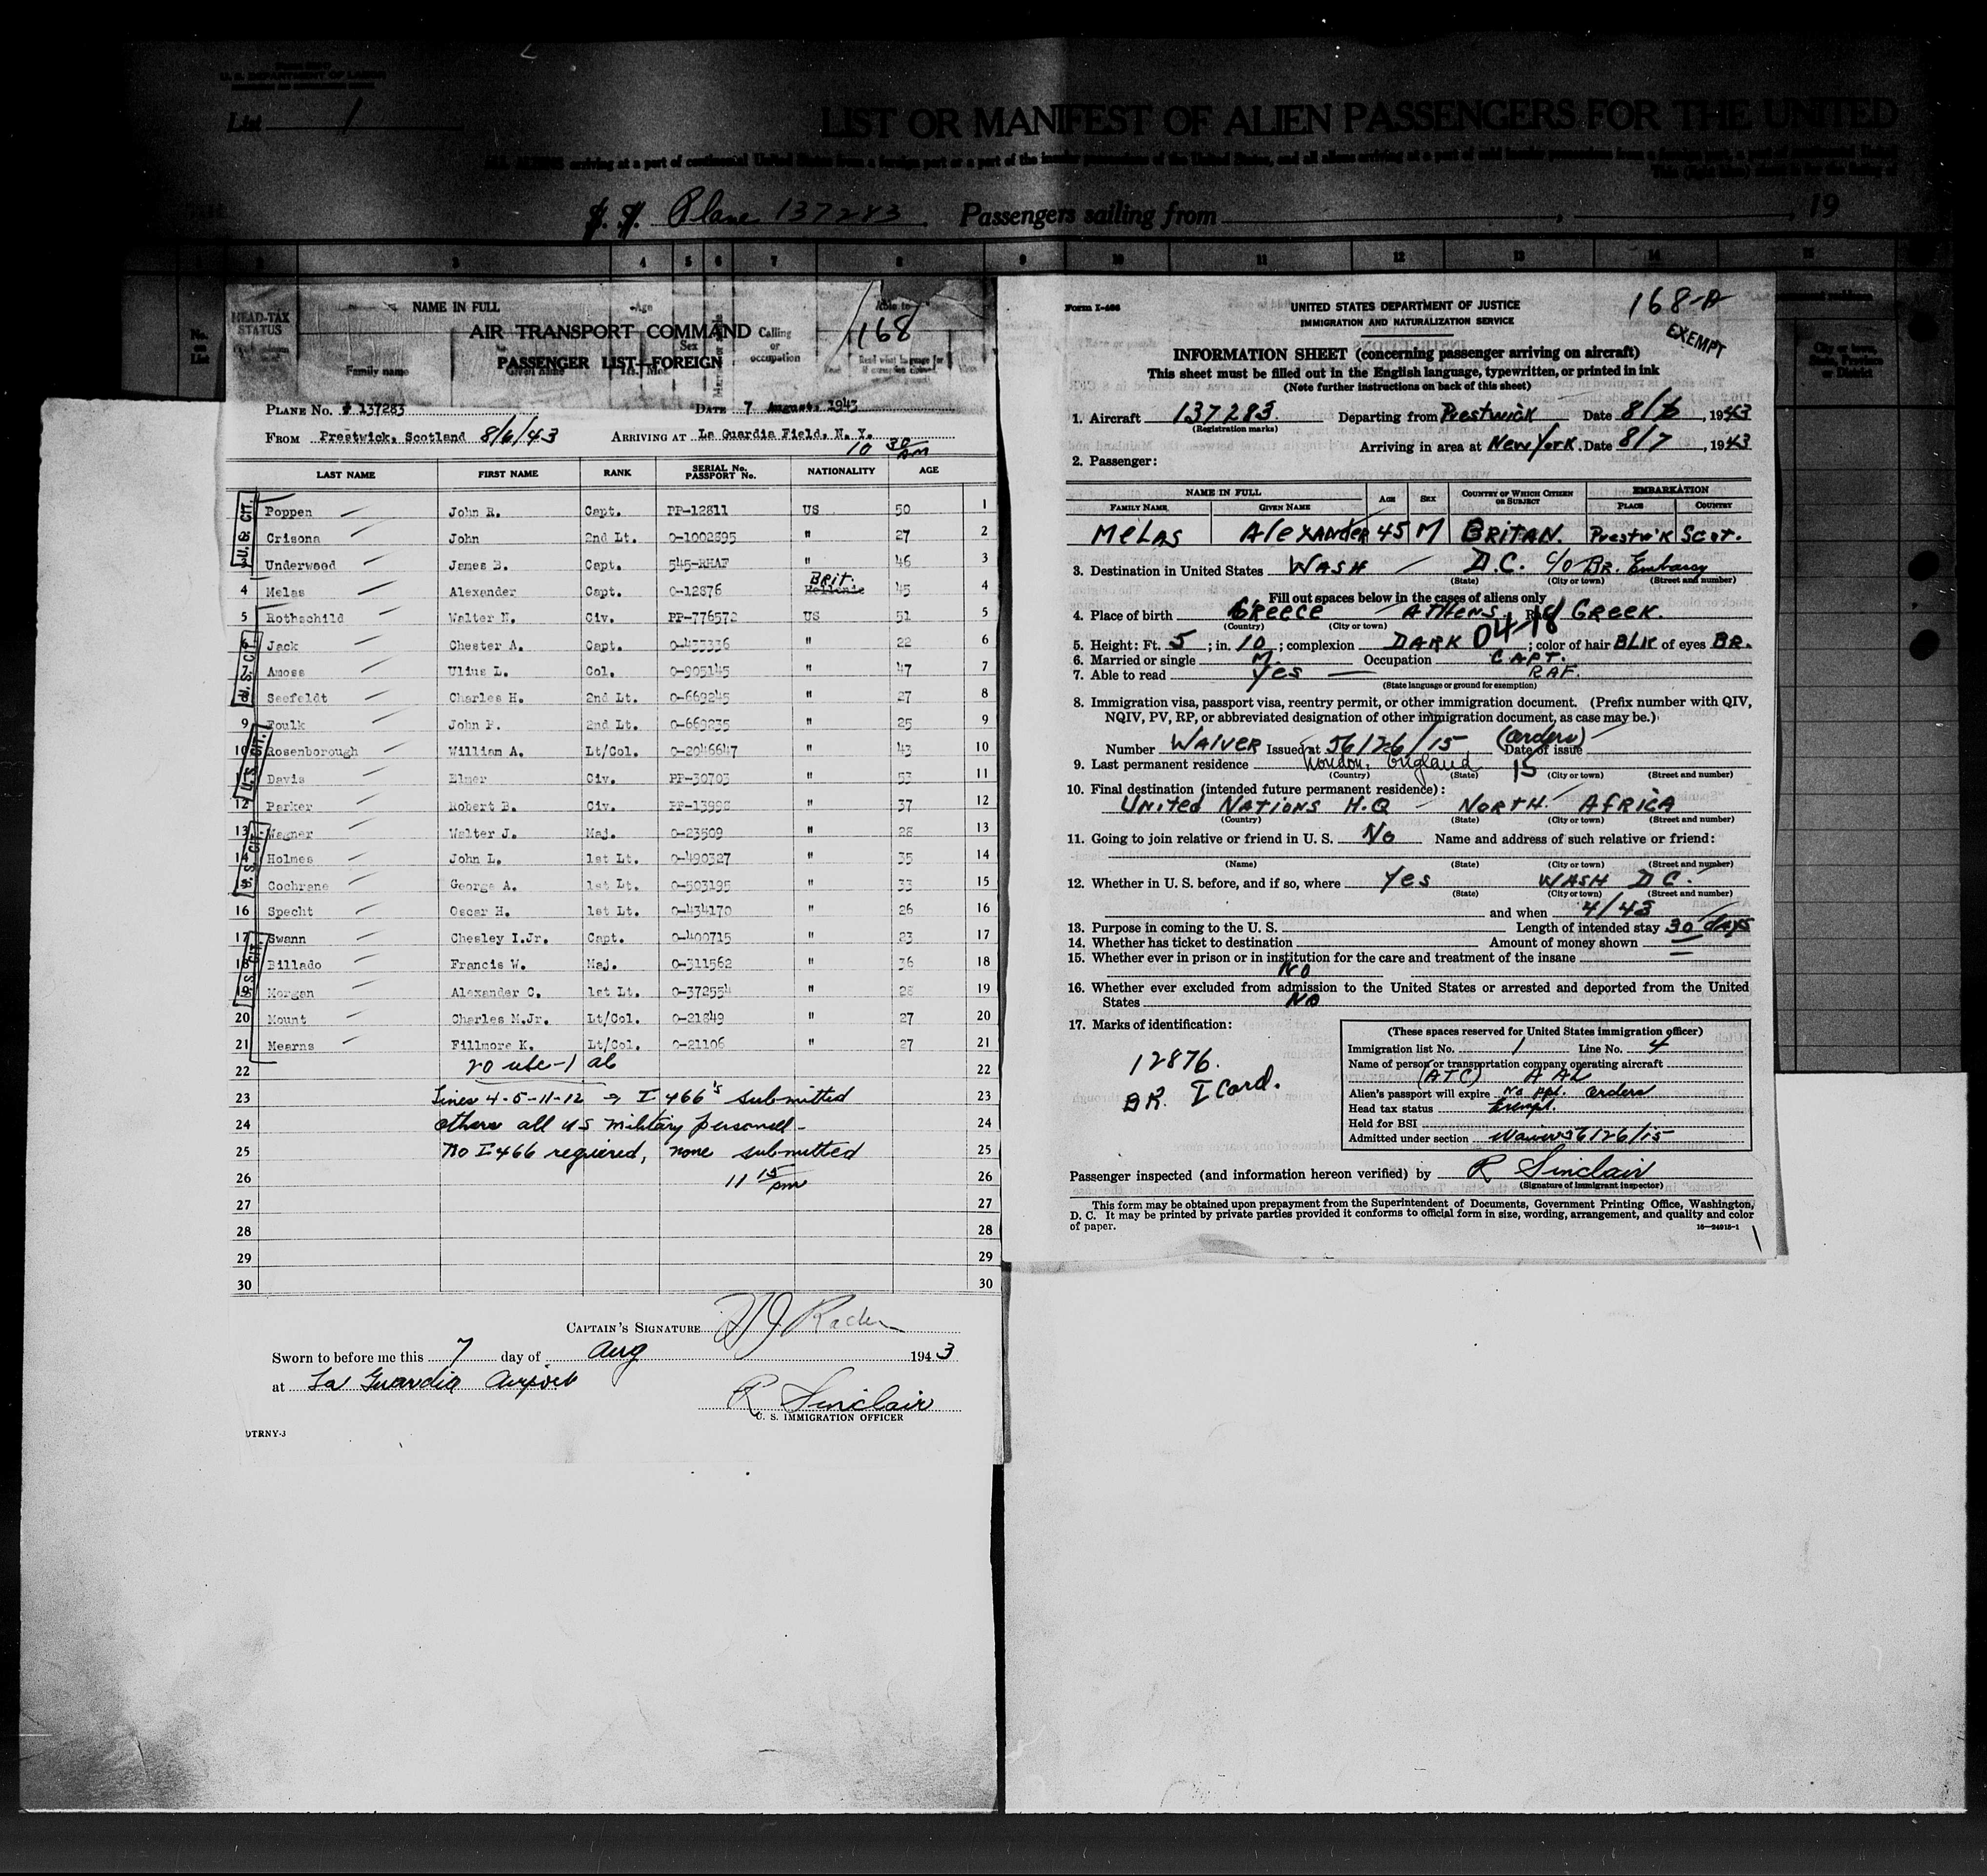 U. S. DEPARTMENT OF LABOR
List 1
LIST OR MANIFEST OF ALIEN PASSENGERS FOR THE UNITED
ALL ALIENS arriving at a port of continental United States from a foreign port or a port of the insular possessions of the United States, and all aliens arriving at a port of said insular possessions from a foreign port, a port of continental United
S. S. Plane 137283 Passengers sailing from , 19
2 3 4 5 6 7 8 9 10 11 12 13 14 15
No. on List
HEAD-TAX STATUS
NAME IN FULL
Family name
Given name
Age
Sex
Calling or occupation
Able to
AIR TRANSPORT COMMAND
168
PASSENGER LIST—FOREIGN
PLANE No. # 137283 DATE 7 August, 1943
FROM Prestwick, Scotland 8/6/43 ARRIVING AT La Guardia Field, N. Y.
10 30/pm
LAST NAME FIRST NAME RANK SERIAL No. PASSPORT No. NATIONALITY AGE
Poppen John R. Capt. PP-12811 US 50 1
Crisona John 2nd Lt. O-1002895 " 27 2
Underwood James B. Capt. 545-RHAF " 46 3
4 Melas Alexander Capt. O-12876 Hellenic Brit. 45 4
Rothschild Walter N. Civ. PP-776572 US 51 5
6 Jack Chester A. Capt. O-433336 " 22 6
7 Amoss Ulius L. Col. O-905145 " 47 7
8 Seefeldt Charles H. 2nd Lt. O-669245 " 27 8
9 Foulk John P. 2nd Lt. O-669235 " 25 9
10 Rosenborough William A. Lt/Col. O-2046647 " 43 10
Davis Elmer Civ. PP-30703 " 53 11
12 Parker Robert B. Civ. PP-13998 " 37 12
13 Wagner Walter J. Maj. O-23509 " 28 13
14 Holmes John L. 1st Lt. O-490327 " 35 14
Cochrane George A. 1st Lt. O-503195 " 33 15
16 Specht Oscar H. 1st Lt. O-434170 " 26 16
17 Swann Chesley I.Jr. Capt. O-400715 " 23 17
18 Billado Francis W. Maj. O-311562 " 36 18
19 Morgan Alexander C. 1st Lt. O-372554 " 28 19
20 Mount Charles M.Jr. Lt/Col. O-21849 " 27 20
21 Mearns Fillmore K. Lt/Col. O-21106 " 27 21
U. S. CIT.
U. S. CIT.
U. S. CIT.
U. S. CIT.
U. S. CIT.
22 20 usc-1 al 22
23 Lines 4-5-11-12 → I 466's submitted 23
24 others all US military personell- 24
25 No I 466 required, none submitted 25
26 11 15/pm 26
27 27
28 28
29 29
30 30
CAPTAIN'S SIGNATURE
Sworn to before me this 7 day of Aug 1943
at La Guardia Airport
R Sinclair
U. S. IMMIGRATION OFFICER
DTRNY-3
Form I-466
UNITED STATES DEPARTMENT OF JUSTICE
IMMIGRATION AND NATURALIZATION SERVICE
168-A
EXEMPT
INFORMATION SHEET (concerning passenger arriving on aircraft)
This sheet must be filled out in the English language, typewritten, or printed in ink
(Note further instructions on back of this sheet)
1. Aircraft 137283 Departing from Prestwick Date 8/6, 1943
(Registration marks)
Arriving in area at New York. Date 8/7, 1943
2. Passenger:
NAME IN FULL AGE SEX COUNTRY OF WHICH CITIZEN OR SUBJECT EMBARKATION
FAMILY NAME GIVEN NAME PLACE COUNTRY
Melas Alexander 45 M BRITAN. Prestwik Scot.
3. Destination in United States WASH D.C. C/O BR. Embassy
(State) (City or town) (Street and number)
Fill out spaces below in the cases of aliens only
4. Place of birth Greece ATHENS GREEK.
(Country) (City or town)
04-18
5. Height: Ft. 5; in. 10; complexion DARK; color of hair BLK of eyes BR.
6. Married or single M. Occupation CAPT.
7. Able to read Yes RAF.
(State language or ground for exemption)
8. Immigration visa, passport visa, reentry permit, or other immigration document. (Prefix number with QIV,
NQIV, PV, RP, or abbreviated designation of other immigration document, as case may be.)
Number WAIVER Issued at 56/26/15 (orders) Date of issue
9. Last permanent residence London, England 15
(Country) (State) (City or town) (Street and number)
10. Final destination (intended future permanent residence):
United NATIONS H.Q NORTH AFRICA
(Country) (State) (City or town) (Street and number)
11. Going to join relative or friend in U. S. No Name and address of such relative or friend:
(Name) (State) (City or town) (Street and number)
12. Whether in U. S. before, and if so, where Yes WASH D C.
(State) (City or town) (Street and number)
and when 4/43
13. Purpose in coming to the U. S. Length of intended stay 30 days
14. Whether has ticket to destination Amount of money shown —
15. Whether ever in prison or in institution for the care and treatment of the insane
NO
16. Whether ever excluded from admission to the United States or arrested and deported from the United
States NO
17. Marks of identification:
12876.
BR. I Card.
(These spaces reserved for United States immigration officer)
Immigration list No. 1 Line No. 4
Name of person or transportation company operating aircraft
(ATC) AAL
Alien's passport will expire No ppt. orders
Head tax status Exempt.
Held for BSI
Admitted under section Waiver 56/26/15
Passenger inspected (and information hereon verified) by R Sinclair
(Signature of immigrant inspector)
This form may be obtained upon prepayment from the Superintendent of Documents, Government Printing Office, Washington,
D. C. It may be printed by private parties provided it conforms to official form in size, wording, arrangement, and quality and color
of paper.
16—24915-1